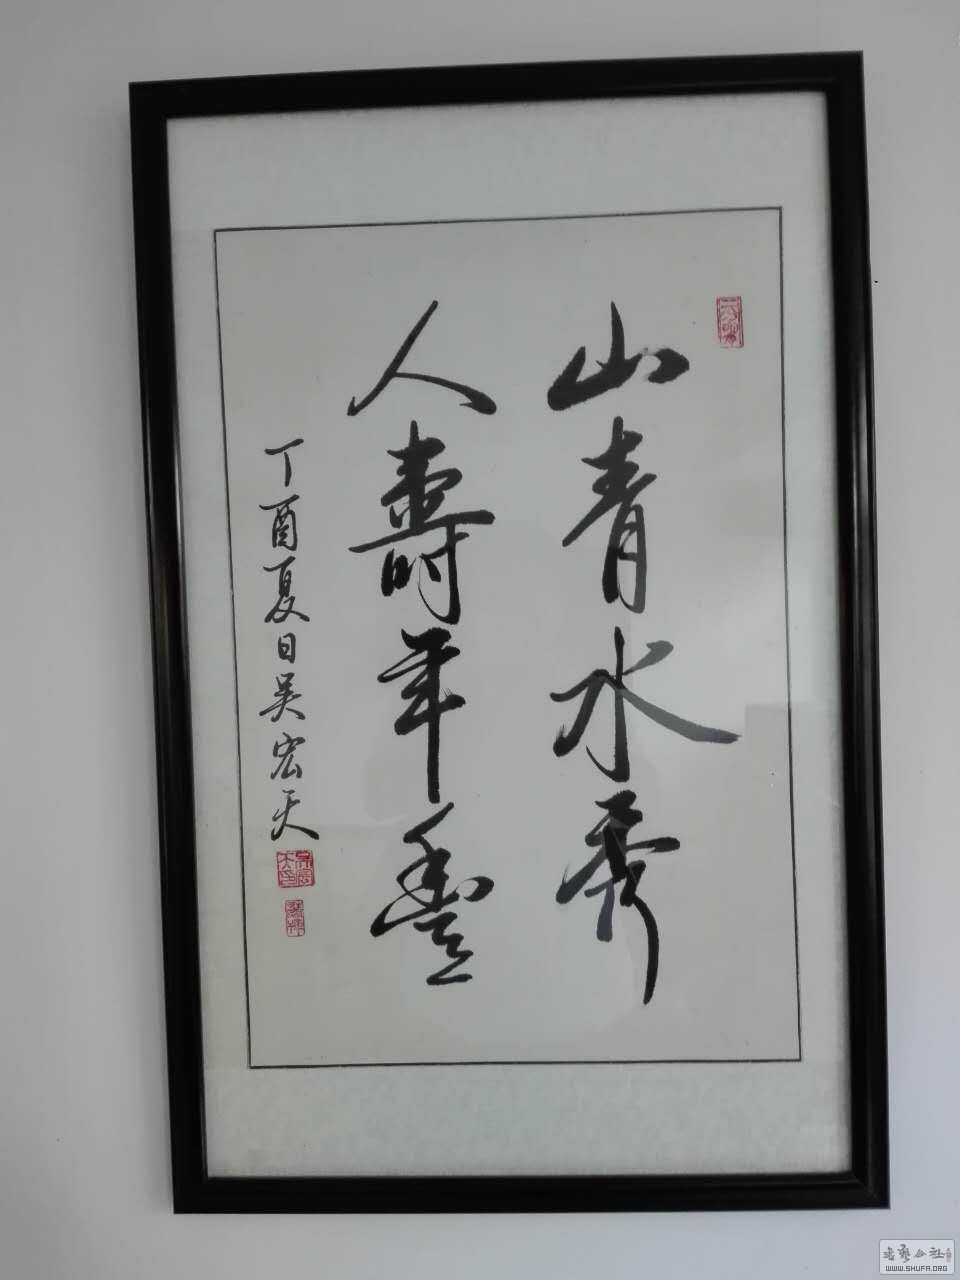 山青水秀
人壽年豐
丁酉夏日吴宏天
书艺公社
WWW.SHUFA.ORG